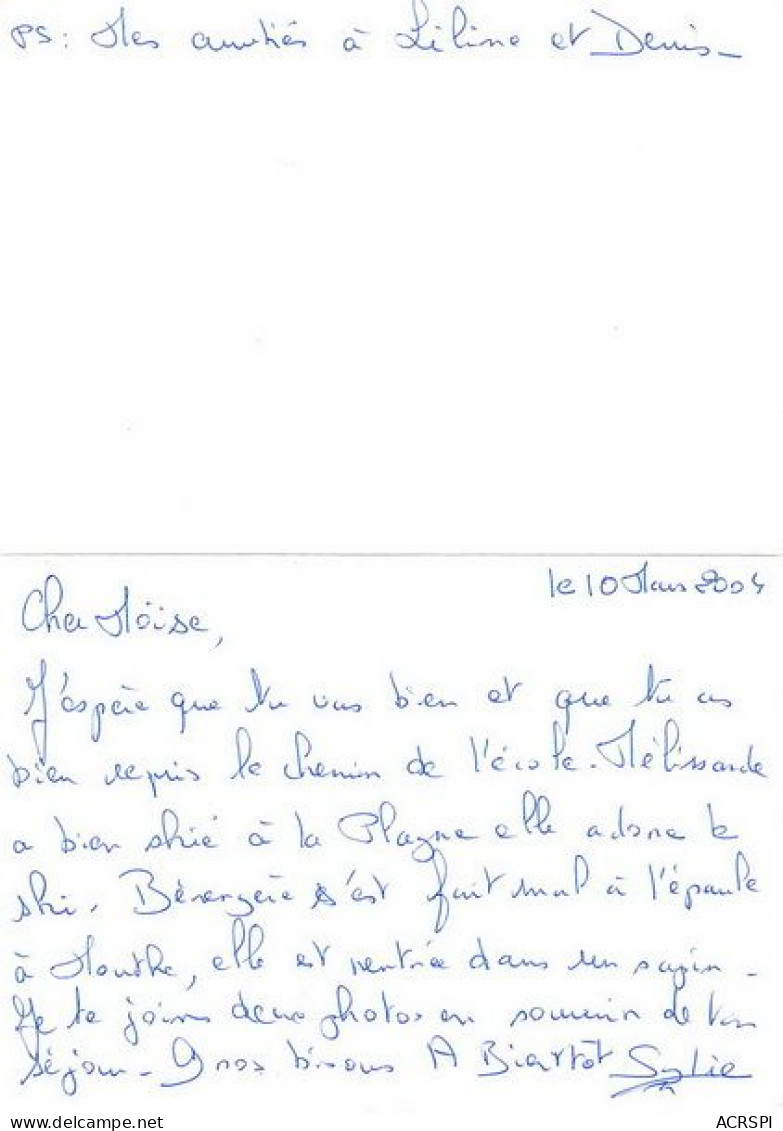 PS: Mes amitiés à Liline et Denis_
le 10 Mars 2004
Cher Möise,
J'espère que tu vas bien et que tu as
bien repris le chemin de l'école. Mélissande
a bien skié à la Plagne elle adore le
ski. Bérengère s'est fait mal à l'épaule
à Mouthe, elle est rentrée dans un sapin_
Je te joins deux photos en souvenir de ton
séjour_ Gros bisous A Biartôt Sylvie
ACRSPI